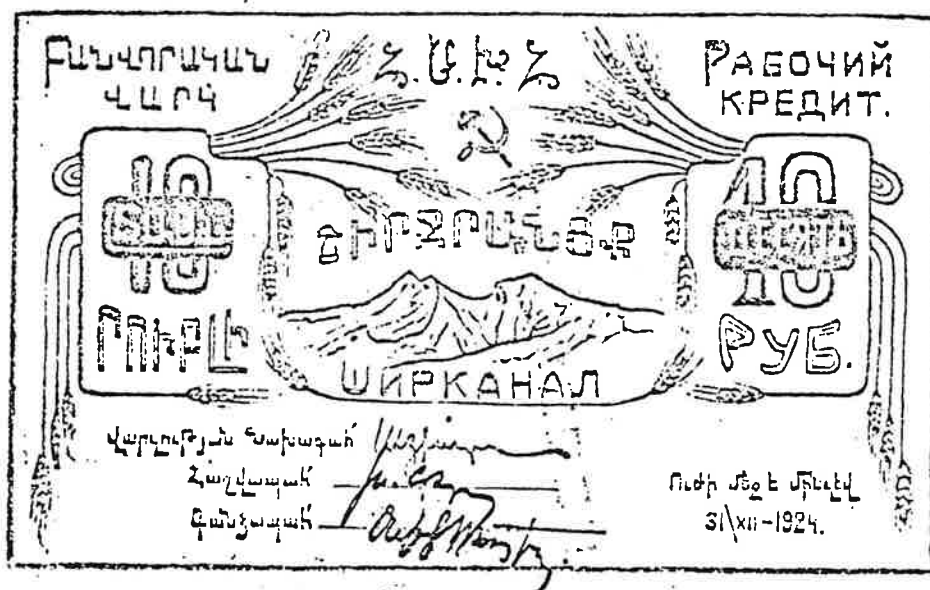 ԲԱՆՎՈՐԱԿԱՆ ՎԱՐԿ
Հ.Ս.Խ.Հ
РАБОЧИЙ КРЕДИТ.
10
ՏԱՍԸ
10
ՌՈՒԲԼԻ
ՇԻՐՋՐԱՆՑՔ
ШИРКАНАЛ
10
ДЕСЯТЬ
10
РУБ.
Վարչության Նախագահ
Հաշվապահ
Գանձապահ
Ուժի մեջ է մինչև
31\XII-1924.